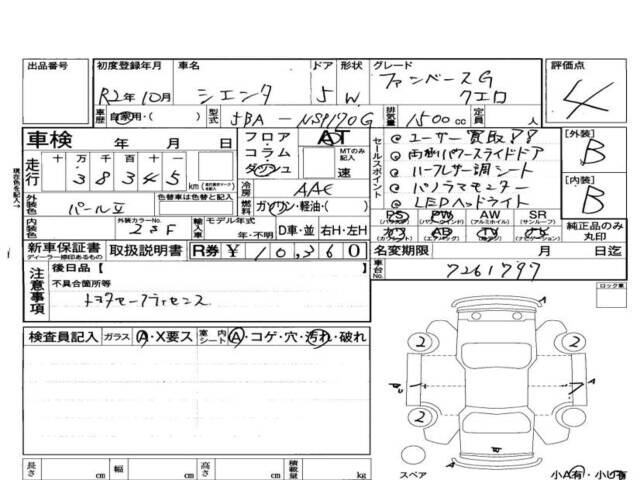 出品番号 初度登録年月 車名 ドア 形状 グレード 評価点
R2年10月 シエンタ 5 W ファンベースG 4
クエロ
車歴 自家用・( ) 型式 5BA-NSP170G 排気量 1500cc 定員 人
車検 年 月 日 フロア・コラム・ダッシュ AT MTのみ記入 速
セールスポイント
@ユーザー買取車
@両側パワースライドドア
@ハーフレザー調シート
@パノラマモニター
@LEDヘッドライト
[外装] B
[内装] B
走行 十 万 千 百 十 一
38345 km
現在色を記入→
外装色 パールⅡ 色替車は色替と記入
冷房 AAC
燃料 ガソリン・軽油・( )
内装色 外装カラーNo. 輸入車 モデル年式 年・不明 D車・並 右H・左H
PS PW AW SR
(パワステ) (パワーウインド) (アルミホイル) (サンルーフ)
カワ AB TV ナビ
純正品のみ丸印
新車保証書 取扱説明書 R券 ¥10,360
ディーラー捺印あるもの
名変期限 月 日迄
車台No. 7261797
注意事項 後日品【
不具合箇所等
ロック車
検査員記入 ガラス A・X要ス 室内シート A・コゲ・穴・汚れ・破れ
A
2 2
A
2 2
スペア
小A有・小U有
長さ cm 幅 cm 高さ cm 積載量 kg